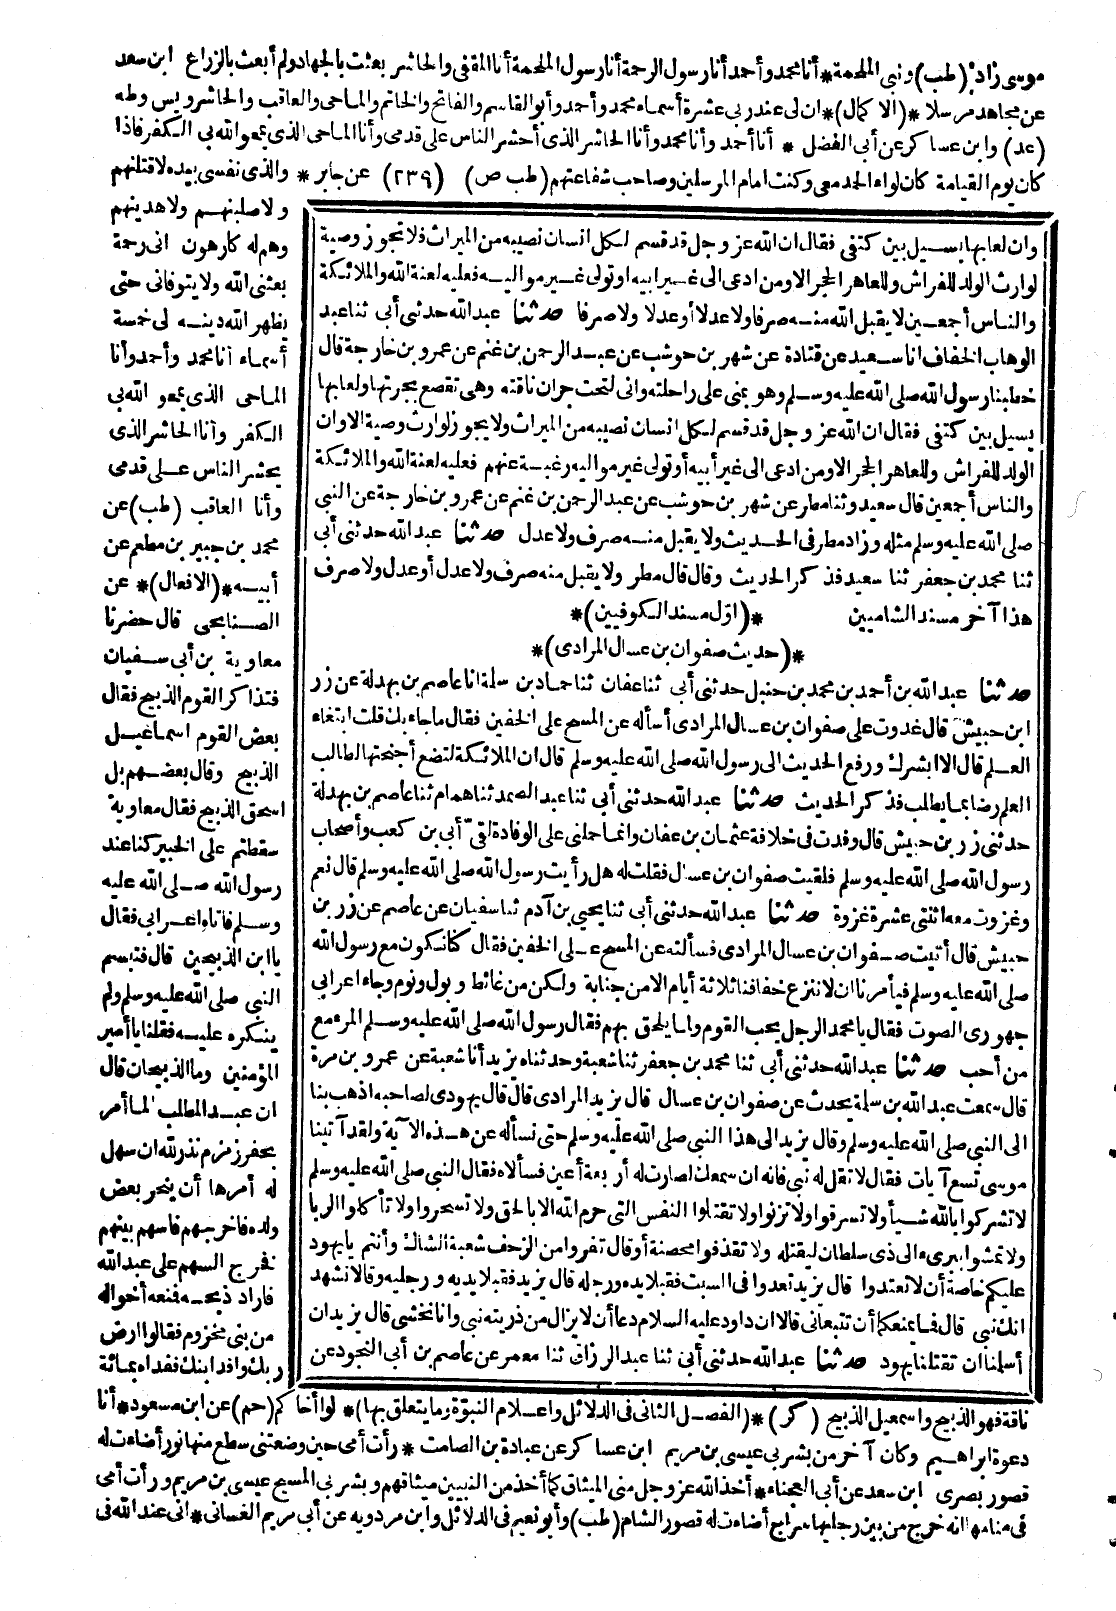 موسى زاد * (طب) ونبي الملحمة * أنا محمد وأحمد أنا رسول الرحمة أنا رسول الملحمة أنا المقفى والحاشر بعثت بالجهاد ولم أبعث بالزراع ابن سعد
عن مجاهد مرسلا * (الاكمال) * ان لى عند ربى عشرة أسماء محمد وأحمد وأبو القاسم والفاتح والخاتم والماحى والعاقب والحاشر ويس وطه
(عد) وابن عساكر عن أبى الفضل * أنا أحمد وأنا محمد وأنا الحاشر الذى أحشر الناس على قدمى وأنا الماحى الذى يمحو الله بى الكفر فاذا
كان يوم القيامة كان لواء الحمد معى وكنت امام المرسلين وصاحب شفاعتهم (طب ص) (٢٣٩) عن جابر * والذى نفسى بيده لاقتلنهم
وان لعابها يسيل بين كتفى فقال ان الله عز وجل قد قسم لكل انسان نصيبه من الميراث فلا تجوز وصية
لوارث الولد للفراش وللعاهر الحجر الا ومن ادعى الى غير ابيه او تولى غير مواليه فعليه لعنة الله والملائكة
والناس أجمعين لا يقبل الله منه صرفا ولا عدلا أو عدلا ولا صرفا حدثنا عبد الله حدثنى أبى ثنا عبد
الوهاب الخفاف انا سعيد عن قتادة عن شهر بن حوشب عن عبد الرحمن بن غنم عن عمرو بن خارجة قال
خطبنا رسول الله صلى الله عليه وسلم وهو بمنى على راحلته وانى لتحت جران ناقته وهى تقصع بجرتها ولعابها
يسيل بين كتفى فقال ان الله عز وجل قد قسم لكل انسان نصيبه من الميراث ولا يجوز لوارث وصية الا وان
الولد للفراش وللعاهر الحجر الا ومن ادعى الى غير أبيه أو تولى غير مواليه رغبة عنهم فعليه لعنة الله والملائكة
والناس أجمعين قال سعيد وثنا مطر عن شهر بن حوشب عن عبد الرحمن بن غنم عن عمرو بن خارجة عن النبى
صلى الله عليه وسلم مثله وزاد مطر فى الحديث ولا يقبل منه صرف ولا عدل حدثنا عبد الله حدثنى أبى
ثنا محمد بن جعفر ثنا سعيد فذكر الحديث وقال قال مطر ولا يقبل منه صرف ولا عدل أو عدل ولا صرف
هذا آخر مسند الشاميين * (اوّل مسند الكوفيين) *
* (حديث صفوان بن عسال المرادى) *
حدثنا عبد الله بن أحمد بن محمد بن حنبل حدثنى أبى ثنا عفان ثنا حماد بن سلمة انا عاصم بن بهدلة عن زر
ابن حبيش قال غدوت على صفوان بن عسال المرادى أسأله عن المسح على الخفين فقال ما جاء بك قلت ابتغاء
العلم قال الا ابشرك ورفع الحديث الى رسول الله صلى الله عليه وسلم قال ان الملائكة لتضع أجنحتها لطالب
العلم رضا بما يطلب فذكر الحديث حدثنا عبد الله حدثنى أبى ثنا عبد الصمد ثنا همام ثنا عاصم بن بهدلة
حدثنى زر بن حبيش قال وفدت فى خلافة عثمان بن عفان وانما حملنى على الوفادة لقىّ أبى بن كعب وأصحاب
رسول الله صلى الله عليه وسلم فلقيت صفوان بن عسال فقلت له هل رأيت رسول الله صلى الله عليه وسلم قال نعم
وغزوت معه اثنتى عشرة غزوة حدثنا عبد الله حدثنى أبى ثنا يحيى بن آدم ثنا سفيان عن عاصم عن زر بن
حبيش قال أتيت صفوان بن عسال المرادى فسألته عن المسح على الخفين فقال كنا نكون مع رسول الله
صلى الله عليه وسلم فيأمرنا ان لا ننزع خفافنا ثلاثة أيام الا من جنابة ولكن من غائط وبول ونوم وجاء اعرابى
جهورى الصوت فقال يا محمد الرجل يحب القوم ولما يلحق بهم فقال رسول الله صلى الله عليه وسلم المرء مع
من أحب حدثنا عبد الله حدثنى أبى ثنا محمد بن جعفر ثنا شعبة وحدثناه يزيد أنا شعبة عن عمرو بن مرة
قال سمعت عبد الله بن سلمة يحدث عن صفوان بن عسال قال يزيد المرادى قال قال يهودى لصاحبه اذهب بنا
الى النبى صلى الله عليه وسلم وقال يزيد الى هذا النبى صلى الله عليه وسلم حتى نسأله عن هذه الآية ولقد آتينا
موسى تسع آيات فقال لا تقل له نبى فانه ان سمعك لصارت له أربعة أعين فسألاه فقال النبى صلى الله عليه وسلم
لا تشركوا بالله شيأ ولا تسرقوا ولا تزنوا ولا تقتلوا النفس التى حرم الله الا بالحق ولا تسحروا ولا تأكلوا الربا
ولا تمشوا ببرىء الى ذى سلطان ليقتله ولا تقذفوا محصنة أو قال تفروا من الزحف شعبة الشاك وأنتم يا يهود
عليكم خاصة أن لا تعتدوا قال يزيد تعدوا فى السبت فقبلا يده ورجله قال يزيد فقبلا يديه ورجليه وقالا نشهد
انك نبى قال فما يمنعكما أن تتبعانى قالا ان داود عليه السلام دعا أن لا يزال من ذريته نبى وانا نخشى قال يزيد ان
أسلمنا ان تقتلنا يهود حدثنا عبد الله حدثنى أبى ثنا عبد الرزاق ثنا معمر عن عاصم بن أبى النجود عن
ولاصلبنهم ولاهدينهم
وهم له كارهون انى رحمة
بعثنى الله ولا يتوفانى حتى
يظهر الله دينه لى خمسة
أسماء أنا محمد وأحمد وأنا
الماحى الذى يمحو الله بى
الكفر وأنا الحاشر الذى
يحشر الناس على قدمى
وأنا العاقب (طب) عن
محمد بن جبير بن مطعم عن
أبيه * (الافعال) * عن
الصنابحى قال حضرنا
معاوية بن أبى سفيان
فتذاكر القوم الذبيح فقال
بعض القوم اسماعيل
الذبيح وقال بعضهم بل
اسحق الذبيح فقال معاوية
سقطتم على الخبير كنا عند
رسول الله صلى الله عليه
وسلم فاتاه اعرابى فقال
يا ابن الذبيحين قال فتبسم
النبى صلى الله عليه وسلم ولم
ينكره عليه فقلنا يا أمير
المؤمنين وما الذبيحان قال
ان عبد المطلب لما أمر
بحفر زمزم نذر لله ان سهل
له أمرها أن ينحر بعض
ولده فاخرجهم فاسهم بينهم
فخرج السهم على عبد الله
فاراد ذبحه فنعه أخواله
من بنى مخزوم فقالوا ارض
ربك وافد ابنك ففداه بمائة
ناقة فهو الذبيح واسمعيل الذبيح (كر) * (الفصل الثانى فى الدلائل واعلام النبوّة وما يتعلق بها) * لوا أخا كم (حم) عن ابن مسعود * أنا
دعوة ابراهيم وكان آخر من بشر بى عيسى بن مريم ابن عساكر عن عبادة بن الصامت * رأت أمى حين وضعتنى سطع منها نور أضاءت له
قصور بصرى ابن سعد عن أبى العجفاء * أخذ الله عز وجل منى الميثاق كما أخذ من النبيين ميثاقهم وبشر بى المسيح عيسى بن مريم ورأت أمى
فى منامها انه خرج من بين رجليها سراج أضاءت له قصور الشام (طب) وأبو نعيم فى الدلائل وابن مردويه عن أبى مريم الغسانى * انى عند الله فى